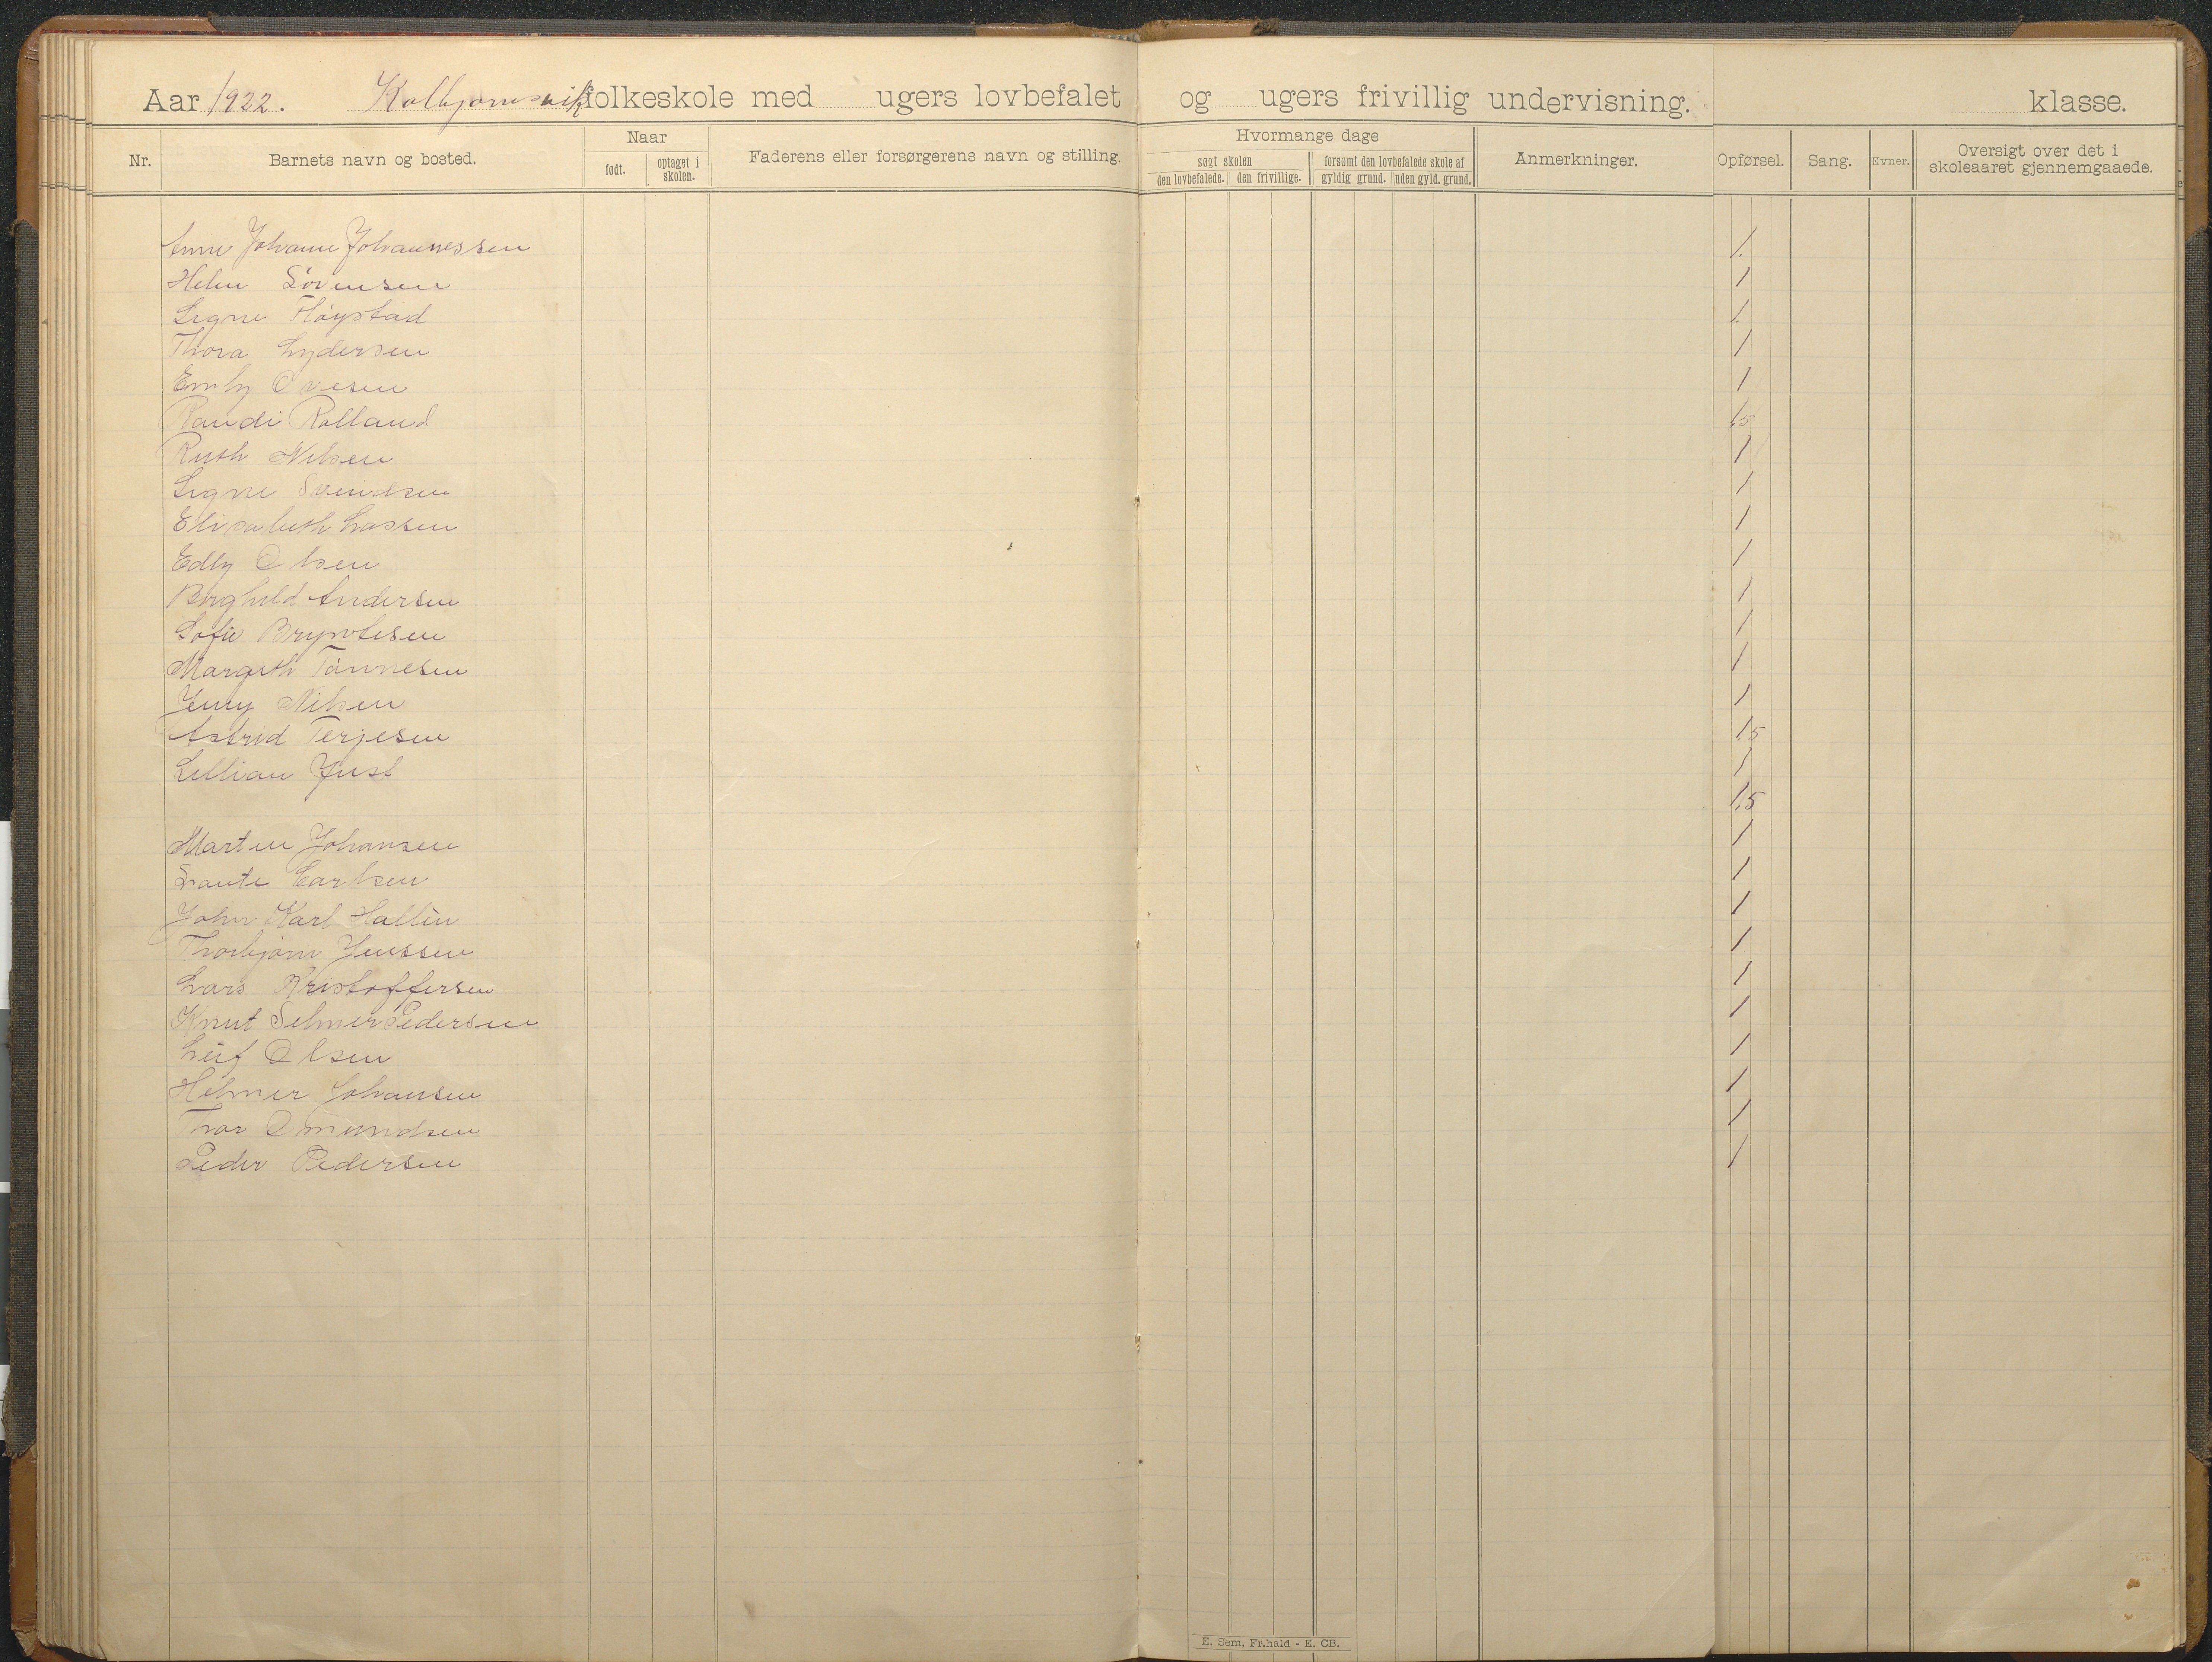 Aar 1922. Kolbjørnsvik folkeskole med ugers lovbefalet og ugers frivillig undervisning. klasse.
Nr. Barnets navn og bosted. Naar født. optaget i skolen. Faderens eller forsørgerens navn og stilling. Hvormange dage søgt skolen den lovbefalede. den frivillige. forsømt den lovbefalede skole af gyldig grund. uden gyld. grund. Anmerkninger. Opførsel. Sang. Evner. Oversigt over det i skoleaaret gjennemgaaede.
Anne Johanne Johannessen 1.
Helen Sörensen 1
Signe Flöystad 1.
Thora Lydersen 1
Emly Ovesen 1
Randi Rolland 1,5
Ruth Nilsen 1
Signe Svendsen 1
Elisabeth Lassen 1
Edly Olsen 1
Borghild Andersen 1
Sofie Bryntesen 1
Margith Tönnesen 1
Jenny Nilsen 1
Astrid Terjesen 1,5
Lillian Just 1
1,5
Martin Johansen 1
Carlsen 1
John Karl Hallèn 1
Thorbjørn Jenssen 1
Lars Kristoffersen 1
Knut Selmer Pedersen 1
Leif Olsen 1
Helmer Johansen 1
Thor Omundsen 1
Peder Pedersen 1
E. Sem, Fr.hald - E. CB.